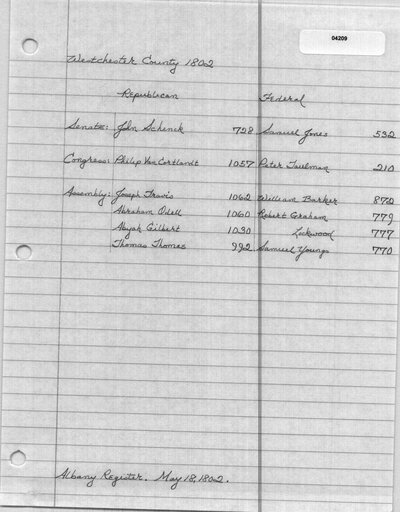 04209
Westchester County 1802
Republican Federal
Senate: John Schenck 728 Samuel Jones 532
Congress: Philip Van Cortlandt 1057 Peter Taulman 210
Assembly: Joseph Travis 1062 William Barker 872
Abraham Odell 1060 Robert Graham 779
Abijah Gilbert 1030 Lockwood 777
Thomas Thomas 992 Samuel Youngs 770
Albany Register. May 18, 1802.